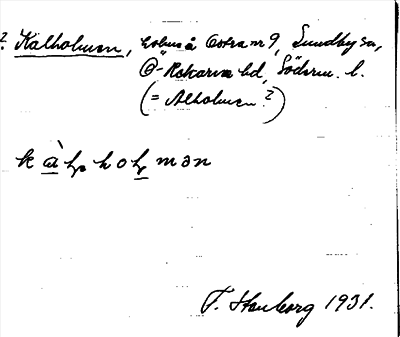 ? Kalholmen, holme å Östra nr 9, Sundby sn,
Ö-Rekarne hd, Söderm. l.
(= Alholmen?)
kàłhołmən
F. Stenborg 1931.